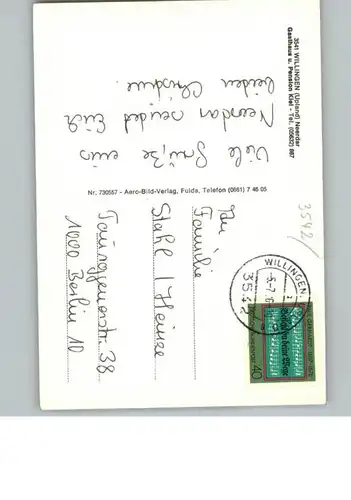 3541 WILLINGEN (Upland) Neerdar
Gasthaus u. Pension Kiel - Tel. (05632) 867
Viele Grüße aus
Neerdar sendet Euch
beiden Christine.
Nr. 730557 - Aero-Bild-Verlag, Fulda, Telefon (0661) 7 46 05
3542/
WILLINGEN
3542
40
An
Familie
Stahl / Heinze
1000 Berlin 10